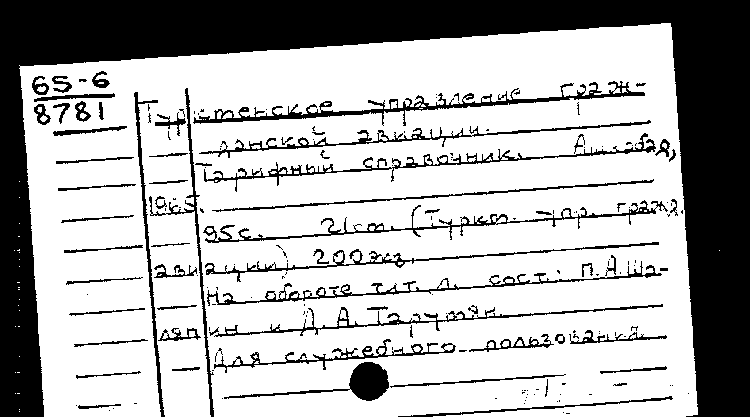 65-6
8781
Туркменское управление граж-
данской авиации.
Тарифный справочник. Ашхабад,
1965.
95с. 21см. (Туркм. упр. гражд.
авиации). 200экз.
На обороте тит. л. сост.: П.А.Ша-
ляпин и Д.А.Тарутян.
Для служебного пользования.